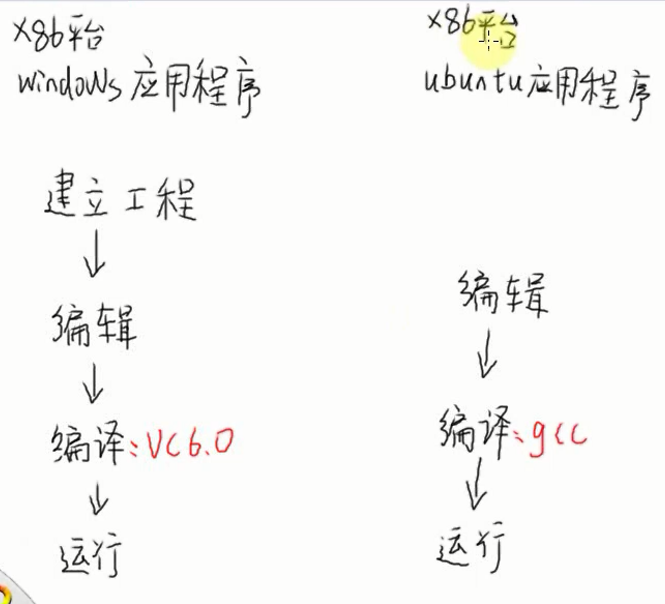 x86平台
windows应用程序
建立工程
↓
编辑
↓
编译:VC6.0
↓
运行
x86平台
ubuntu应用程序
编辑
↓
编译:gcc
↓
运行